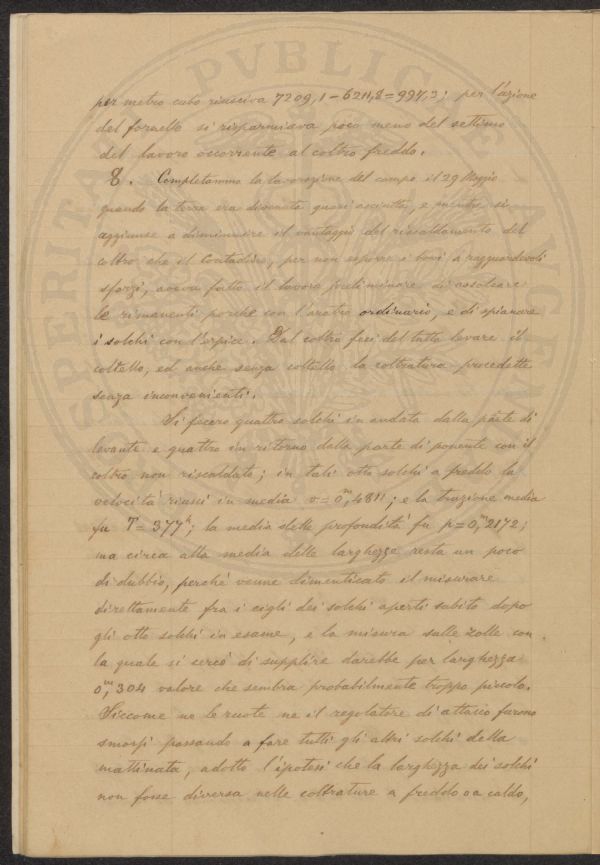 per metro cubo riusciva 7209,1 - 6211,8 = 997,3; per l'azione
del fornello si risparmiava poco meno del settimo
del lavoro occorrente al coltro freddo.
8. Completammo la lavorazione del campo il 29 Maggio
quando la terra era divenuta quasi asciutta, e mentre si
aggiunse a diminuire il vantaggio del riscaldamento del
coltro che il Contadino, per non esporre i bovi a ragguardevoli
sforzi, aveva fatto il lavoro preliminare di
le rimanenti porche con l'aratro ordinario, e di spianare
i solchi con l'erpice. Dal coltro feci del tutto levare il
coltello, ed anche senza coltello la coltratura procedette
senza inconvenienti.
Si fecero quattro solchi in andata dalla parte di
levante e quattro in ritorno dalla parte di ponente con il
coltro non riscaldato; in tali otto solchi a freddo la
velocità riuscì in media v = 0,m4811; e la trazione media
fu T = 377k; la media delle profondità fu p = 0,m2172;
ma circa alla media delle larghezze resta un poco
di dubbio, perchè venne dimenticato il misurare
direttamente fra i cigli dei solchi aperti subito dopo
gli otto solchi in esame, e la misura sulle zolle con
la quale si cercò di supplire darebbe per larghezza
0,m304 valore che sembra probabilmente troppo piccolo.
Siccome ne le ruote ne il regolatore di attacco furono
smossi passando a fare tutti gli altri solchi della
mattinata, adotto l'ipotesi che la larghezza dei solchi
non fosse diversa nelle coltrature a freddo o a caldo,
PVBLIC